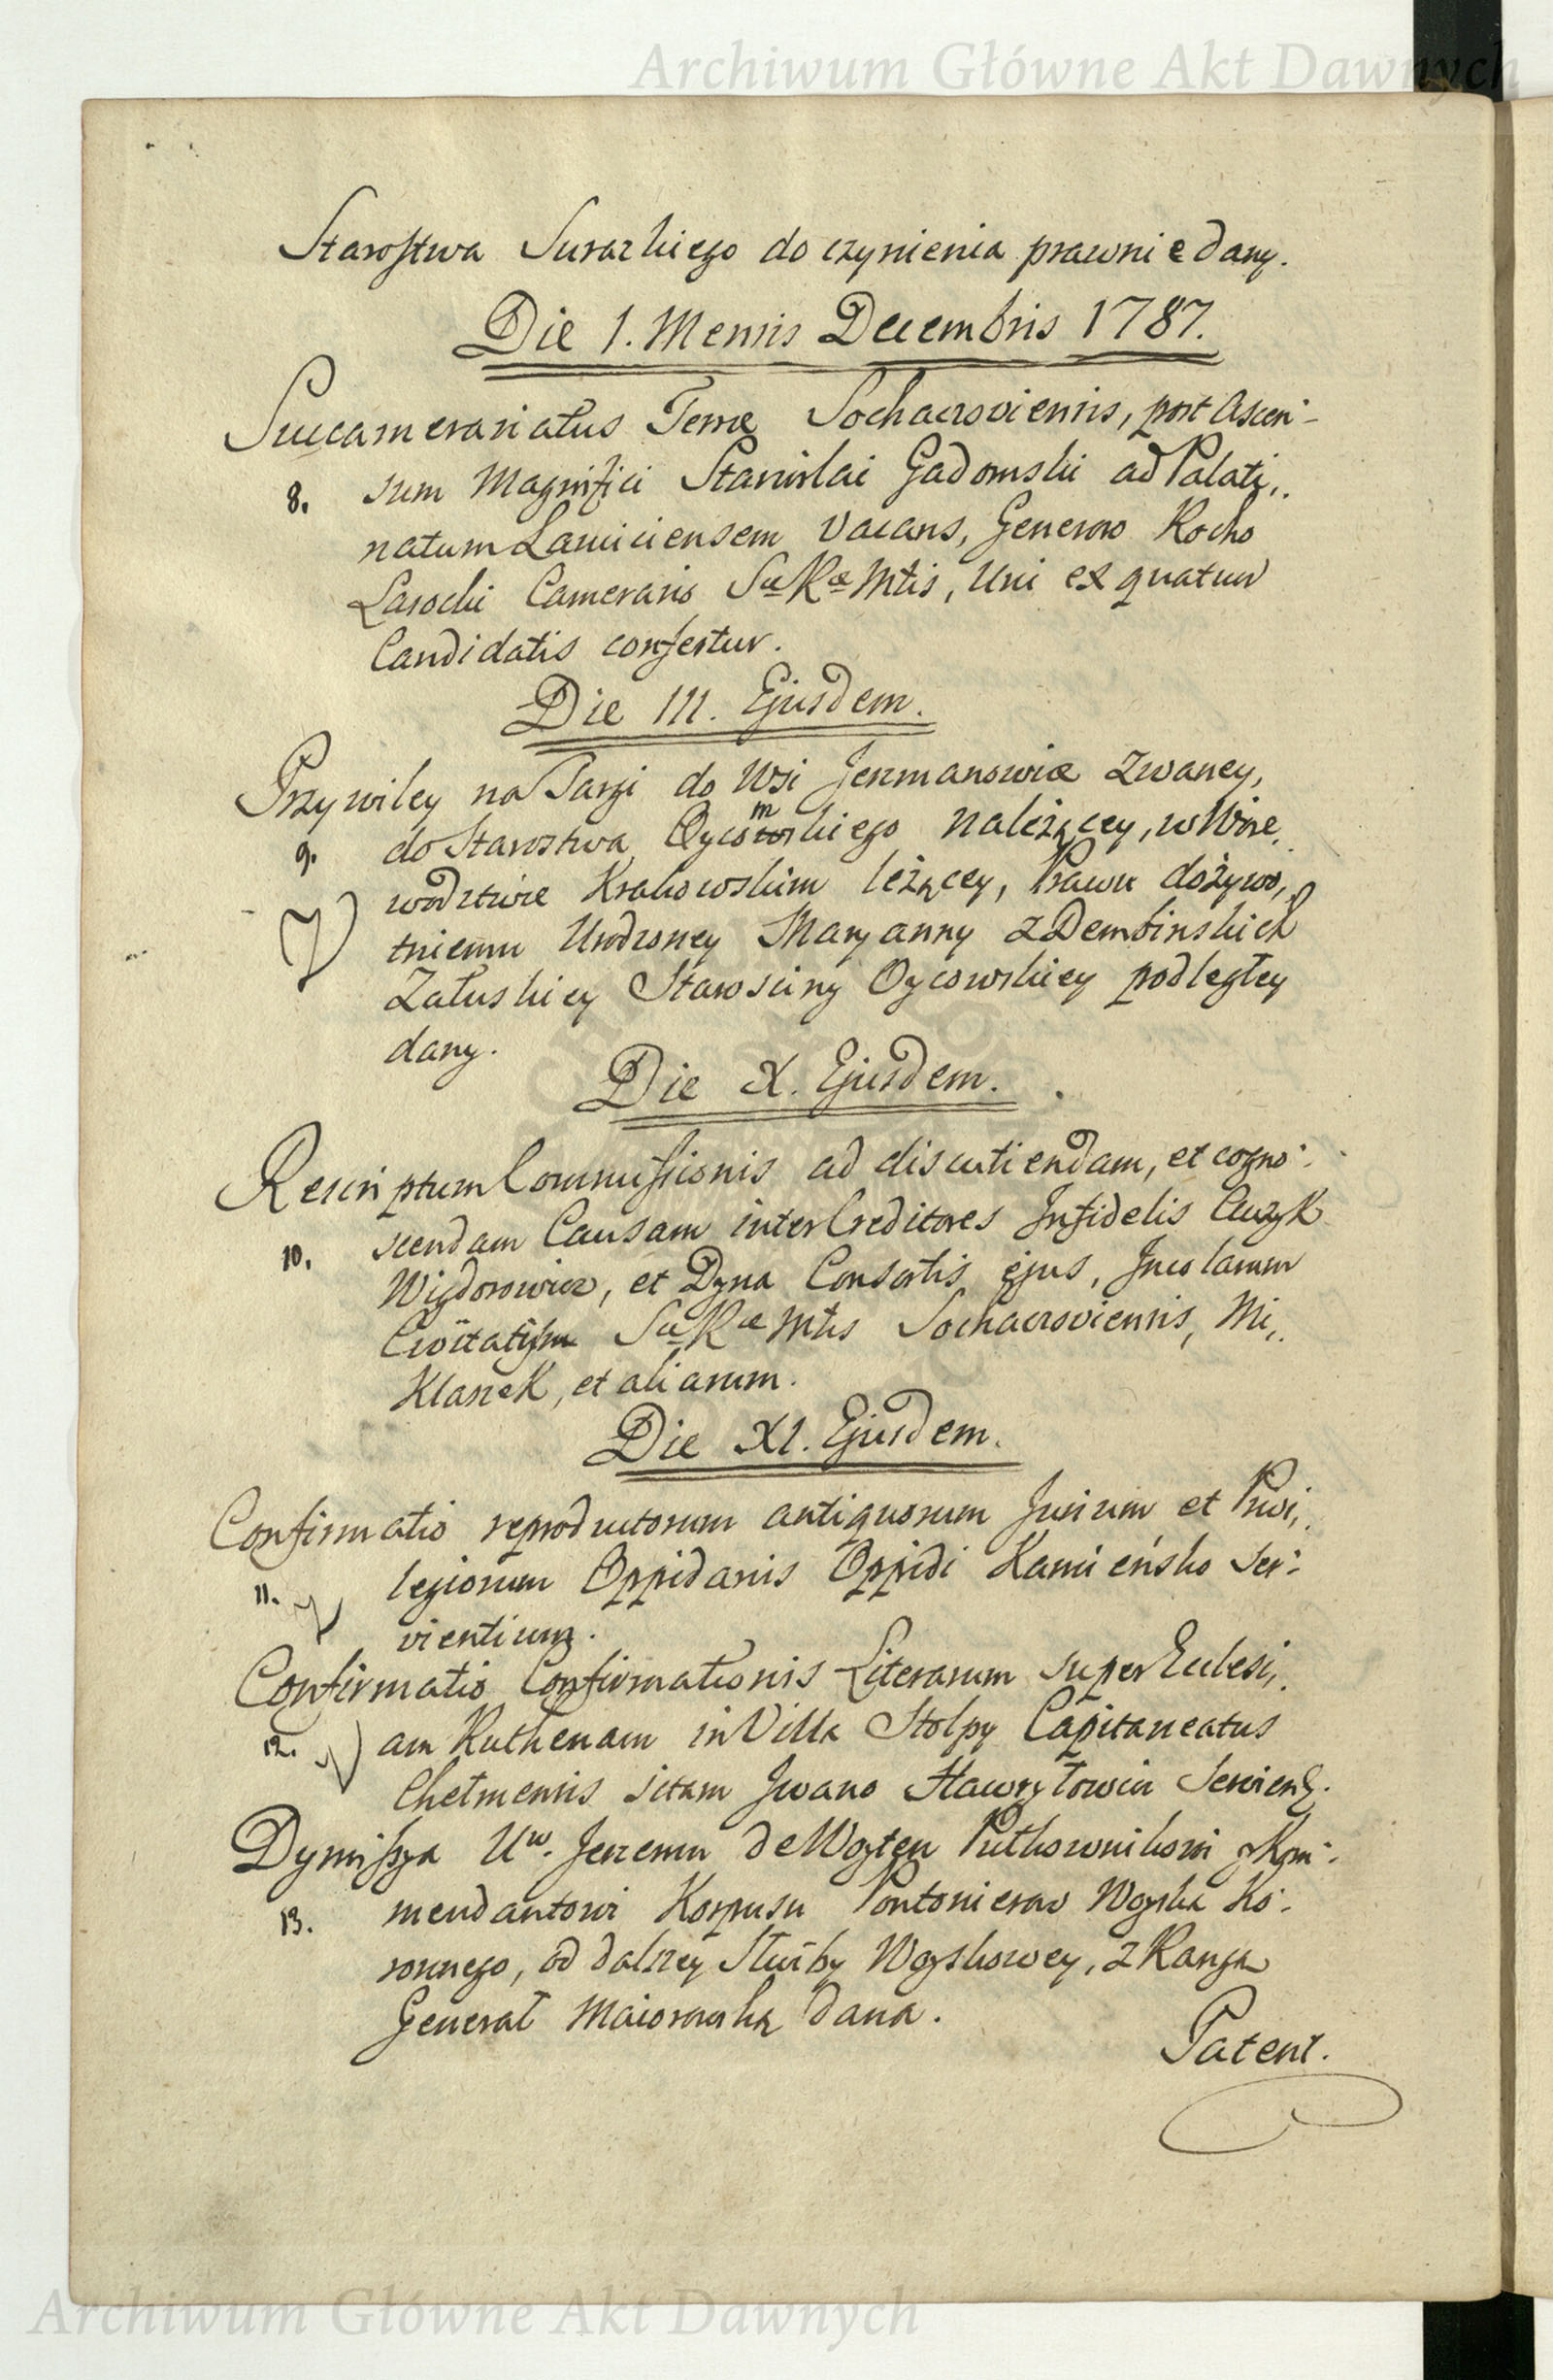 Archiwum Główne Akt Dawnych
Starostwa Surazkiego do czynienia prawnie dany.
Die 1. Mensis Decembris 1787.
Succamerariatus Terræ Sochaczoviensis, post Ascen-
8. sum Magnifici Stanislai Gadomski ad Palati,,
natum Lanciciensem vacans, Generoso Rocho
Lasocki Camerario Sæ Ræ Mtis, Uni ex quatuor
Candidatis confertur.
Die III. Ejusdem.
Przywiley na Targi do Wsi Jerzmanowice zwaney,
9. do Starostwa Oycowskiego należącey, w Woie,,
wodztwie Krakowskim leżącey, Prawu dożywo,,
tniemu Urodzoney Maryanny z Dembinskich
Załuskiey Starosciny Oycowskiey podległey
dany.
Die X. Ejusdem.
Rescriptum Commissionis ad discutiendam, et cogno-
10. scendam Causam inter Creditores Infidelis Czuyk
Wigdorowicz, et Dyna Consortis ejus, Incolarum
Civitatis Sæ Ræ Mtis Sochaczoviensis, Mi,,
Klaszek, et aliarum.
Die XI. Ejusdem.
Confirmatio reproductorum antiquorum Jurium et Privi,,
11. legiorum Oppidanis Oppidi Kamieńsko ser-
vientium.
Confirmatio Confirmationis Literarum super Ecclesi,,
12. am Ruthenam in Villa Stolpy Capitaneatus
Chelmensis sitam Jwano Hawryłowicz servient.
Dymissya Uw. Jerzemu de Woyten Pułkownikowi y Kom-
13. mendantowi Korpusu Pontonierow Woyska Ko-
ronnego, od dalszey Służby Woyskowey, z Rangą
Generał Maiorowską dana.
Patent.
Archiwum Główne Akt Dawnych